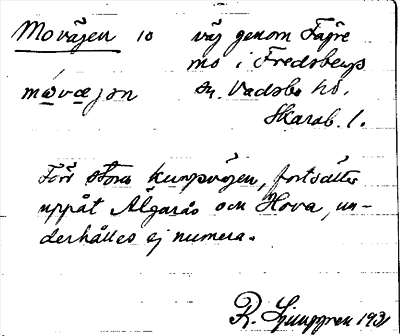 Moväjen 10 väj genom Fägre
mo i Fredsbergs
sn. Vadsbo hd.
mo̲væ̲jən
Skarab. l.
Förr stora kungsvägen, fortsätter
uppåt Älgarås och Hova, un-
derhålles ej numera.
R. Ljunggren 1931